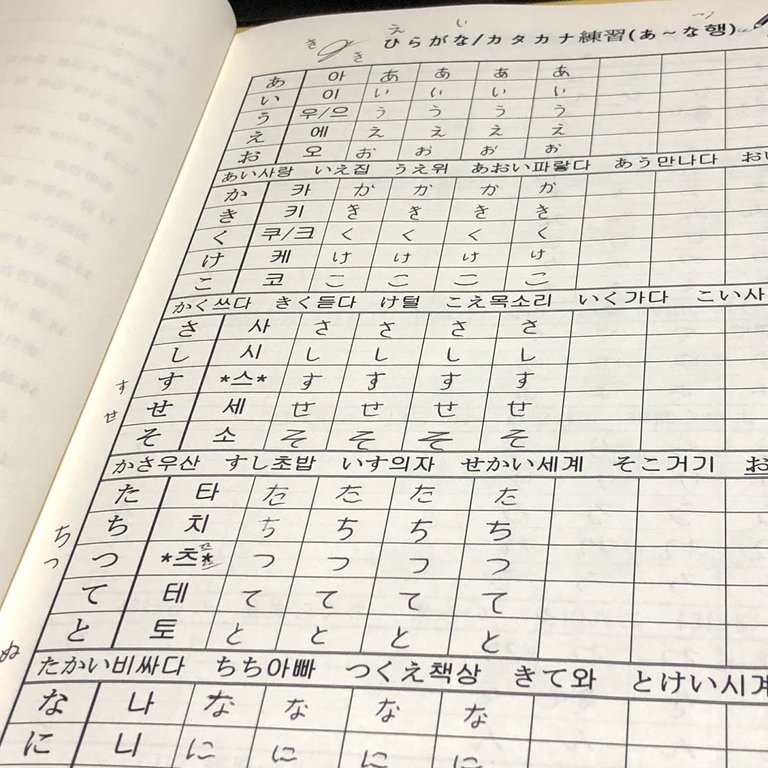 え い
き き ひらがな/カタカナ練習(あ~な행)
あ 아 あ あ あ あ
い 이 い い い い
う 우/으 う う う う
え 에 え え え え
お 오 お お お お
あい사랑 いえ집 うえ위 あおい파랗다 あう만나다
か 카 か か か か
き 키 き き き き
く 쿠/크 く く く く
け 케 け け け け
こ 코 こ こ こ こ
かく쓰다 きく듣다 け털 こえ목소리 いく가다 こい사
さ 사 さ さ さ さ
し 시 し し し し
す す *스* す す す す
せ せ 세 せ せ せ せ
そ 소 そ そ そ そ
かさ우산 すし초밥 いす의자 せかい세계 そこ거기 お
た 타 た た た た
ち ち 치 ち ち ち ち
つ つ *츠* つ つ つ つ
て 테 て て て て
ぬ と 토 と と と と
たかい비싸다 ちち아빠 つくえ책상 きて와 とけい시계
な 나 な な な な
に 니 に に に に